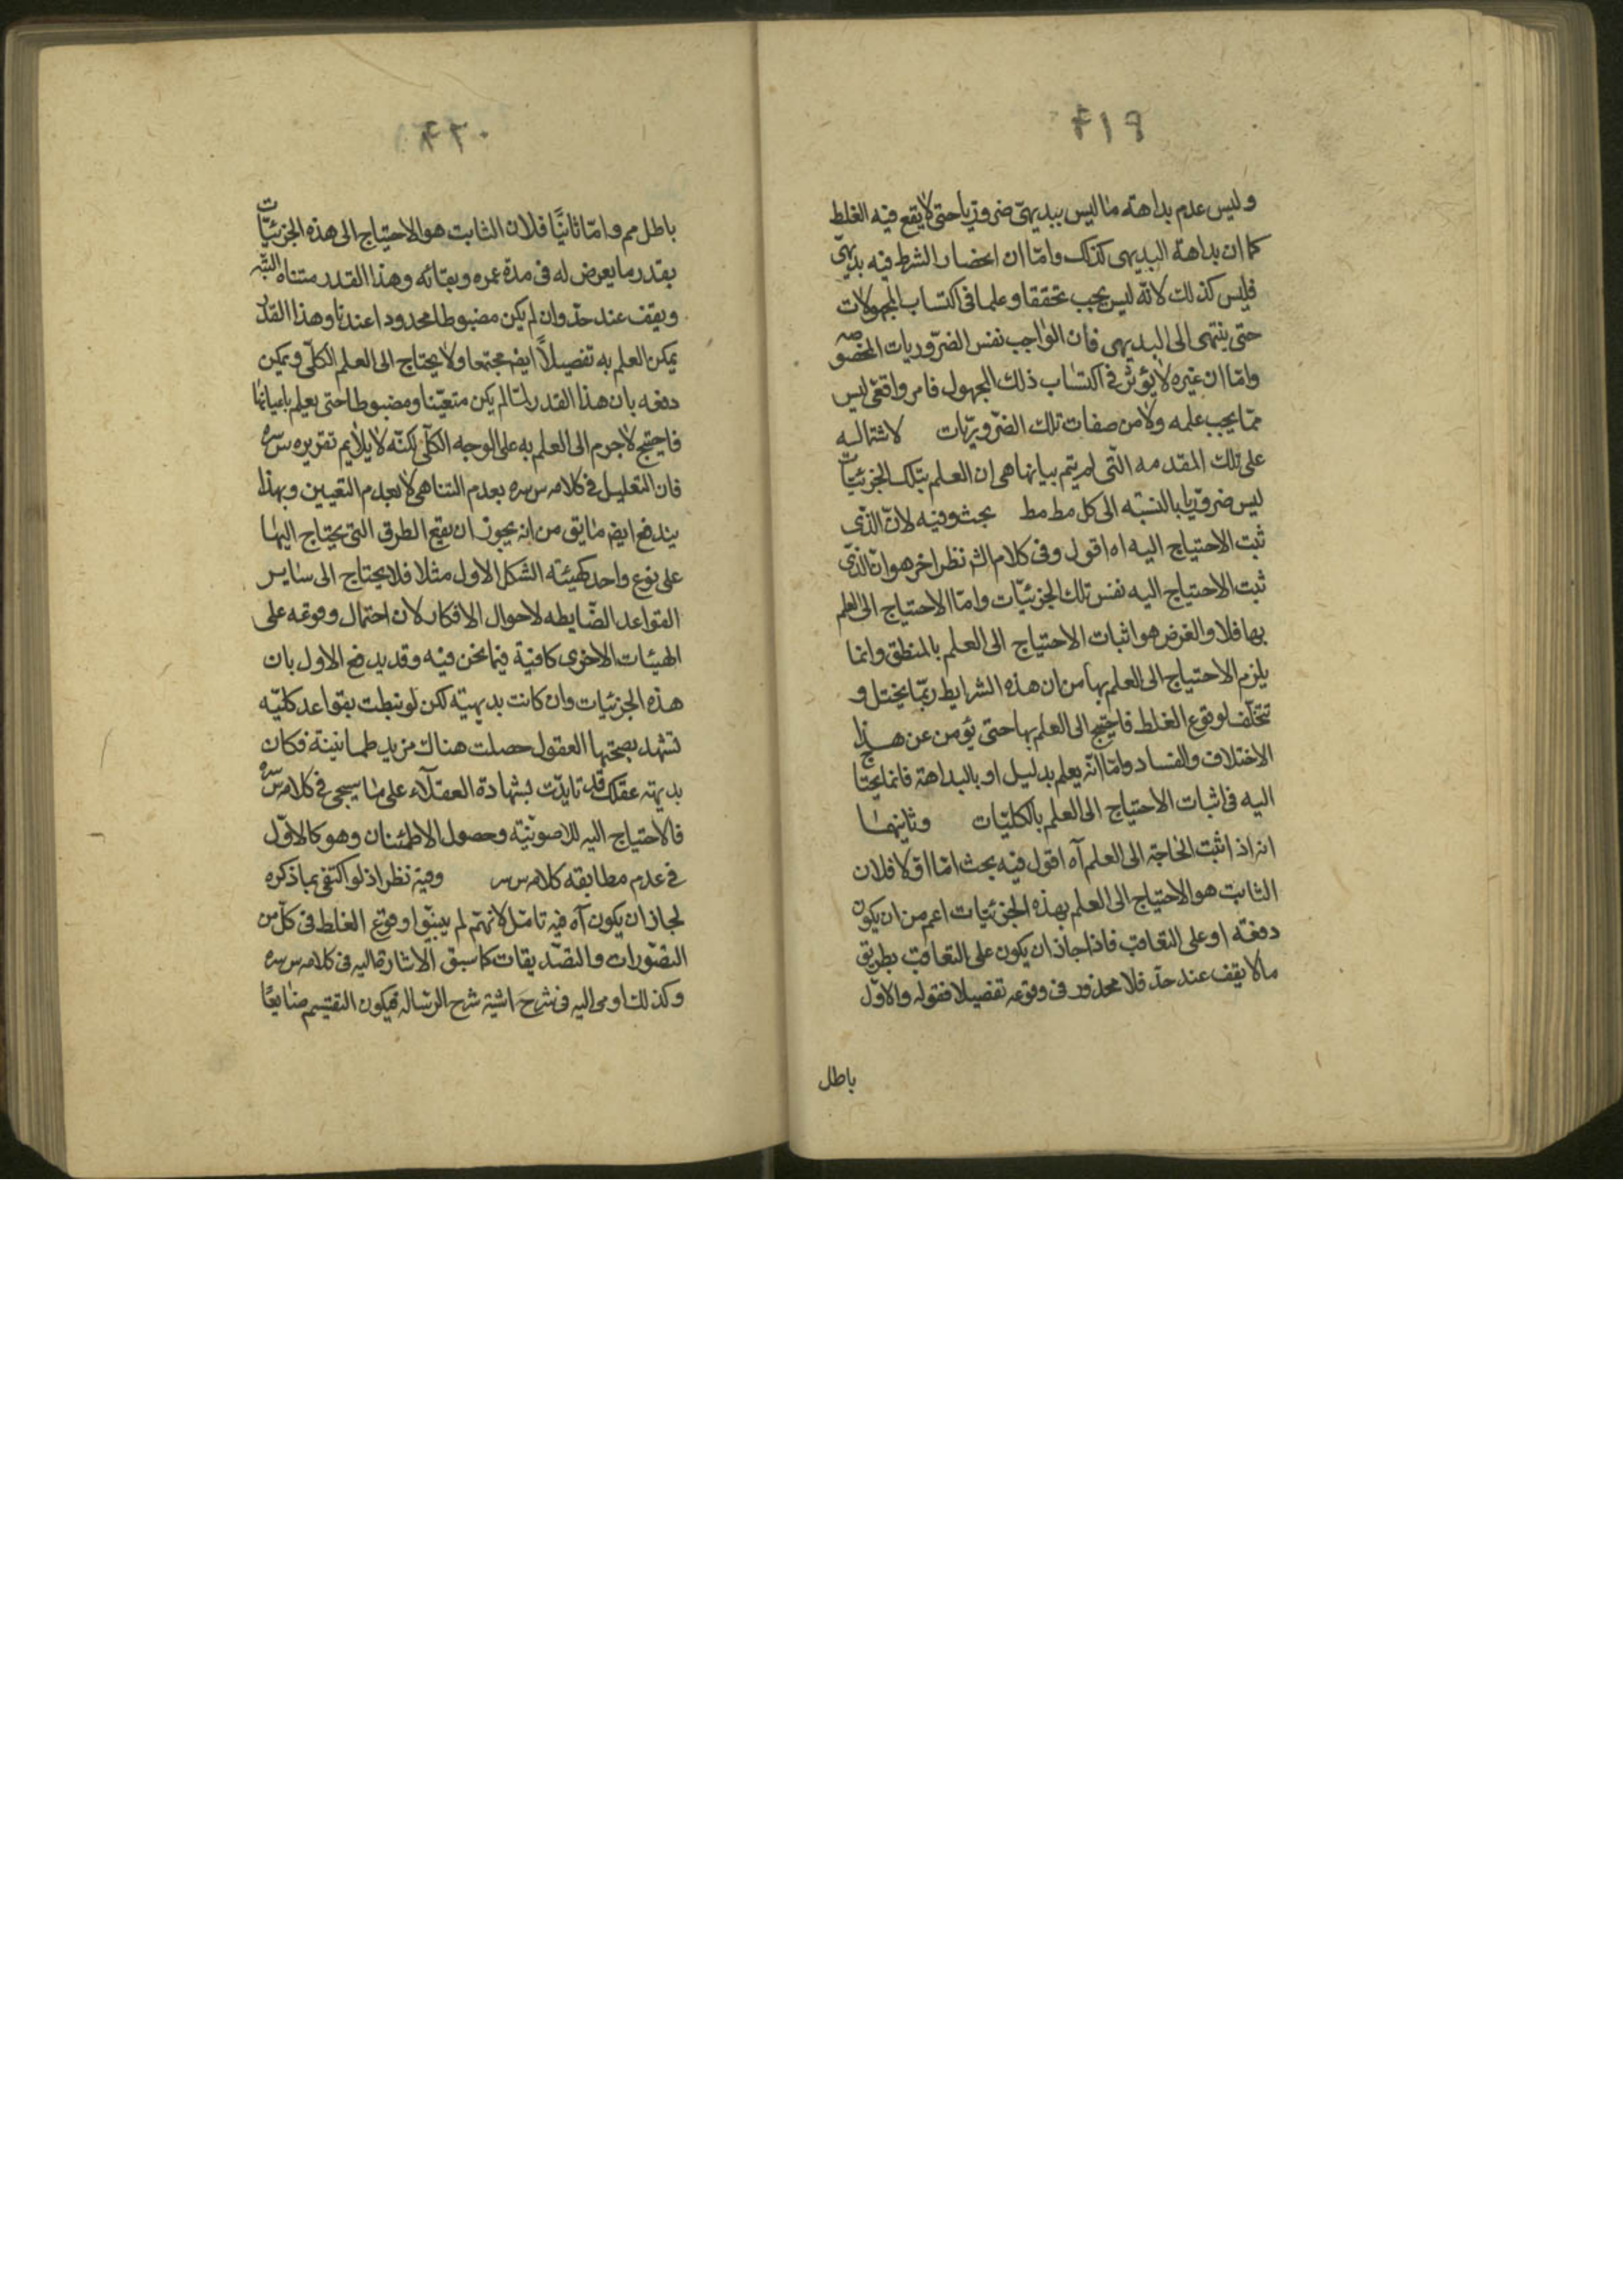 وليس عدم بداهته ما ليس ببديهي ضروريا حتى لا يقع فيه الغلط
كما ان بداهة البديهى كذلك واما ان انحصار الشرط فيه بديهي
فليس كذلك لانه ليس يجب تحققا وعلما فى اكتساب المجهولات
حتى ينتهى الى البديهى فان الواجب نفس الضروريات المخصوصه
واما ان غيره لا يؤثر فى اكتساب ذلك المجهول فامر واقعى ليس
مما يجب علمه ولا من صفات تلك الضروريات لاشتماله
على تلك المقدمه التى لم يتم بيانها هى ان العلم بتلك الجزئيات
ليس ضروريا بالنسبته الى كل مط مط بحث وفيه لان الذى
ثبت الاحتياج اليه اه اقول وفى كلام الش نظر اخر هو ان الذى
ثبت الاحتياج اليه نفس تلك الجزئيات واما الاحتياج الى العلم
بها فلا والغرض هو اثبات الاحتياج الى العلم بالمنطق وانما
يلزم الاحتياج الى العلم بها من ان هذه الشرايط ربما يختل و
تتخلف لوقوع الغلط فاحتيج الى العلم بها حتى يؤمن عن هذا
الاختلاف والفساد واما انه يعلم بدليل او بالبداهة فانما يحتاج
اليه فى اثبات الاحتياج الى العلم بالكليات وثانيهما
انه اذ اثبت الحاجة الى العلم آه اقول فيه بحث اما اولا فلان
الثابت هو الاحتياج الى العلم بهذه الجزئيات اعم من ان يكون
دفعة او على التعاقب فاذا جاز ان يكون على التعاقب بطريق
ما لا يقف عند حد فلا محذور فى وقوعه تفصيلا فقوله والاول
باطل
باطل مم واما ثانيا فلان الثابت هو الاحتياج الى هذه الجزئيات
بقدر ما يعرض له فى مدة عمره وبقائه وهذا القدر متناه البتّه
ويقف عند حد وان لم يكن مضبوطا محدودا عندنا وهذا القدر
يمكن العلم به تفصيلاً ايض مجتمعا ولا يحتاج الى العلم الكلى ويمكن
دفعه بان هذا القدر لما لم يكن متعينا ومضبوطا حتى يعلم باعيانها
فاحتيج لا جرم الى العلم به على الوجه الكلى لكنه لا يلايم تقريره س سره
فان التعليل فى كلامه س سره بعدم التناهى لا بعدم التعيين وبهذا
يندفع ايض ما يق من انه يجوز ان يقع الطرق التى يحتاج اليها
على نوع واحد كهيئته الشكل الاول مثلا فلا يحتاج الى ساير
القواعد الضابطه لاحوال الافكار لان احتمال وقوعه على
الهيئات الاخرى كافية فيما نحن فيه وقد يدفع الاول بان
هذه الجزئيات وان كانت بديهيته لكن لو نيطت بقواعد كليه
تشهد بصحتها العقول حصلت هناك مزيد طمانينة فكان
بديهته عقلك قد تايدت بشهادة العقلآء على ما سيجى فى كلامه س سره
فالاحتياج اليه للاصوبيته وحصول الاطمئنان وهو كالاول
فى عدم مطابقه كلامه س سر وفيه نظر اذ لو اكتفى بما ذكره
لجاز ان يكون آه فيه تامل لانهم لم يبينوا وقوع الغلط فى كل من
التصورات والتصديقات كما سبق الاشارة اليه فى كلامه س سره
وكذلك اومى اليه فى شرح حاشية شرح الرساله فيكون التقسيم ضايعًا